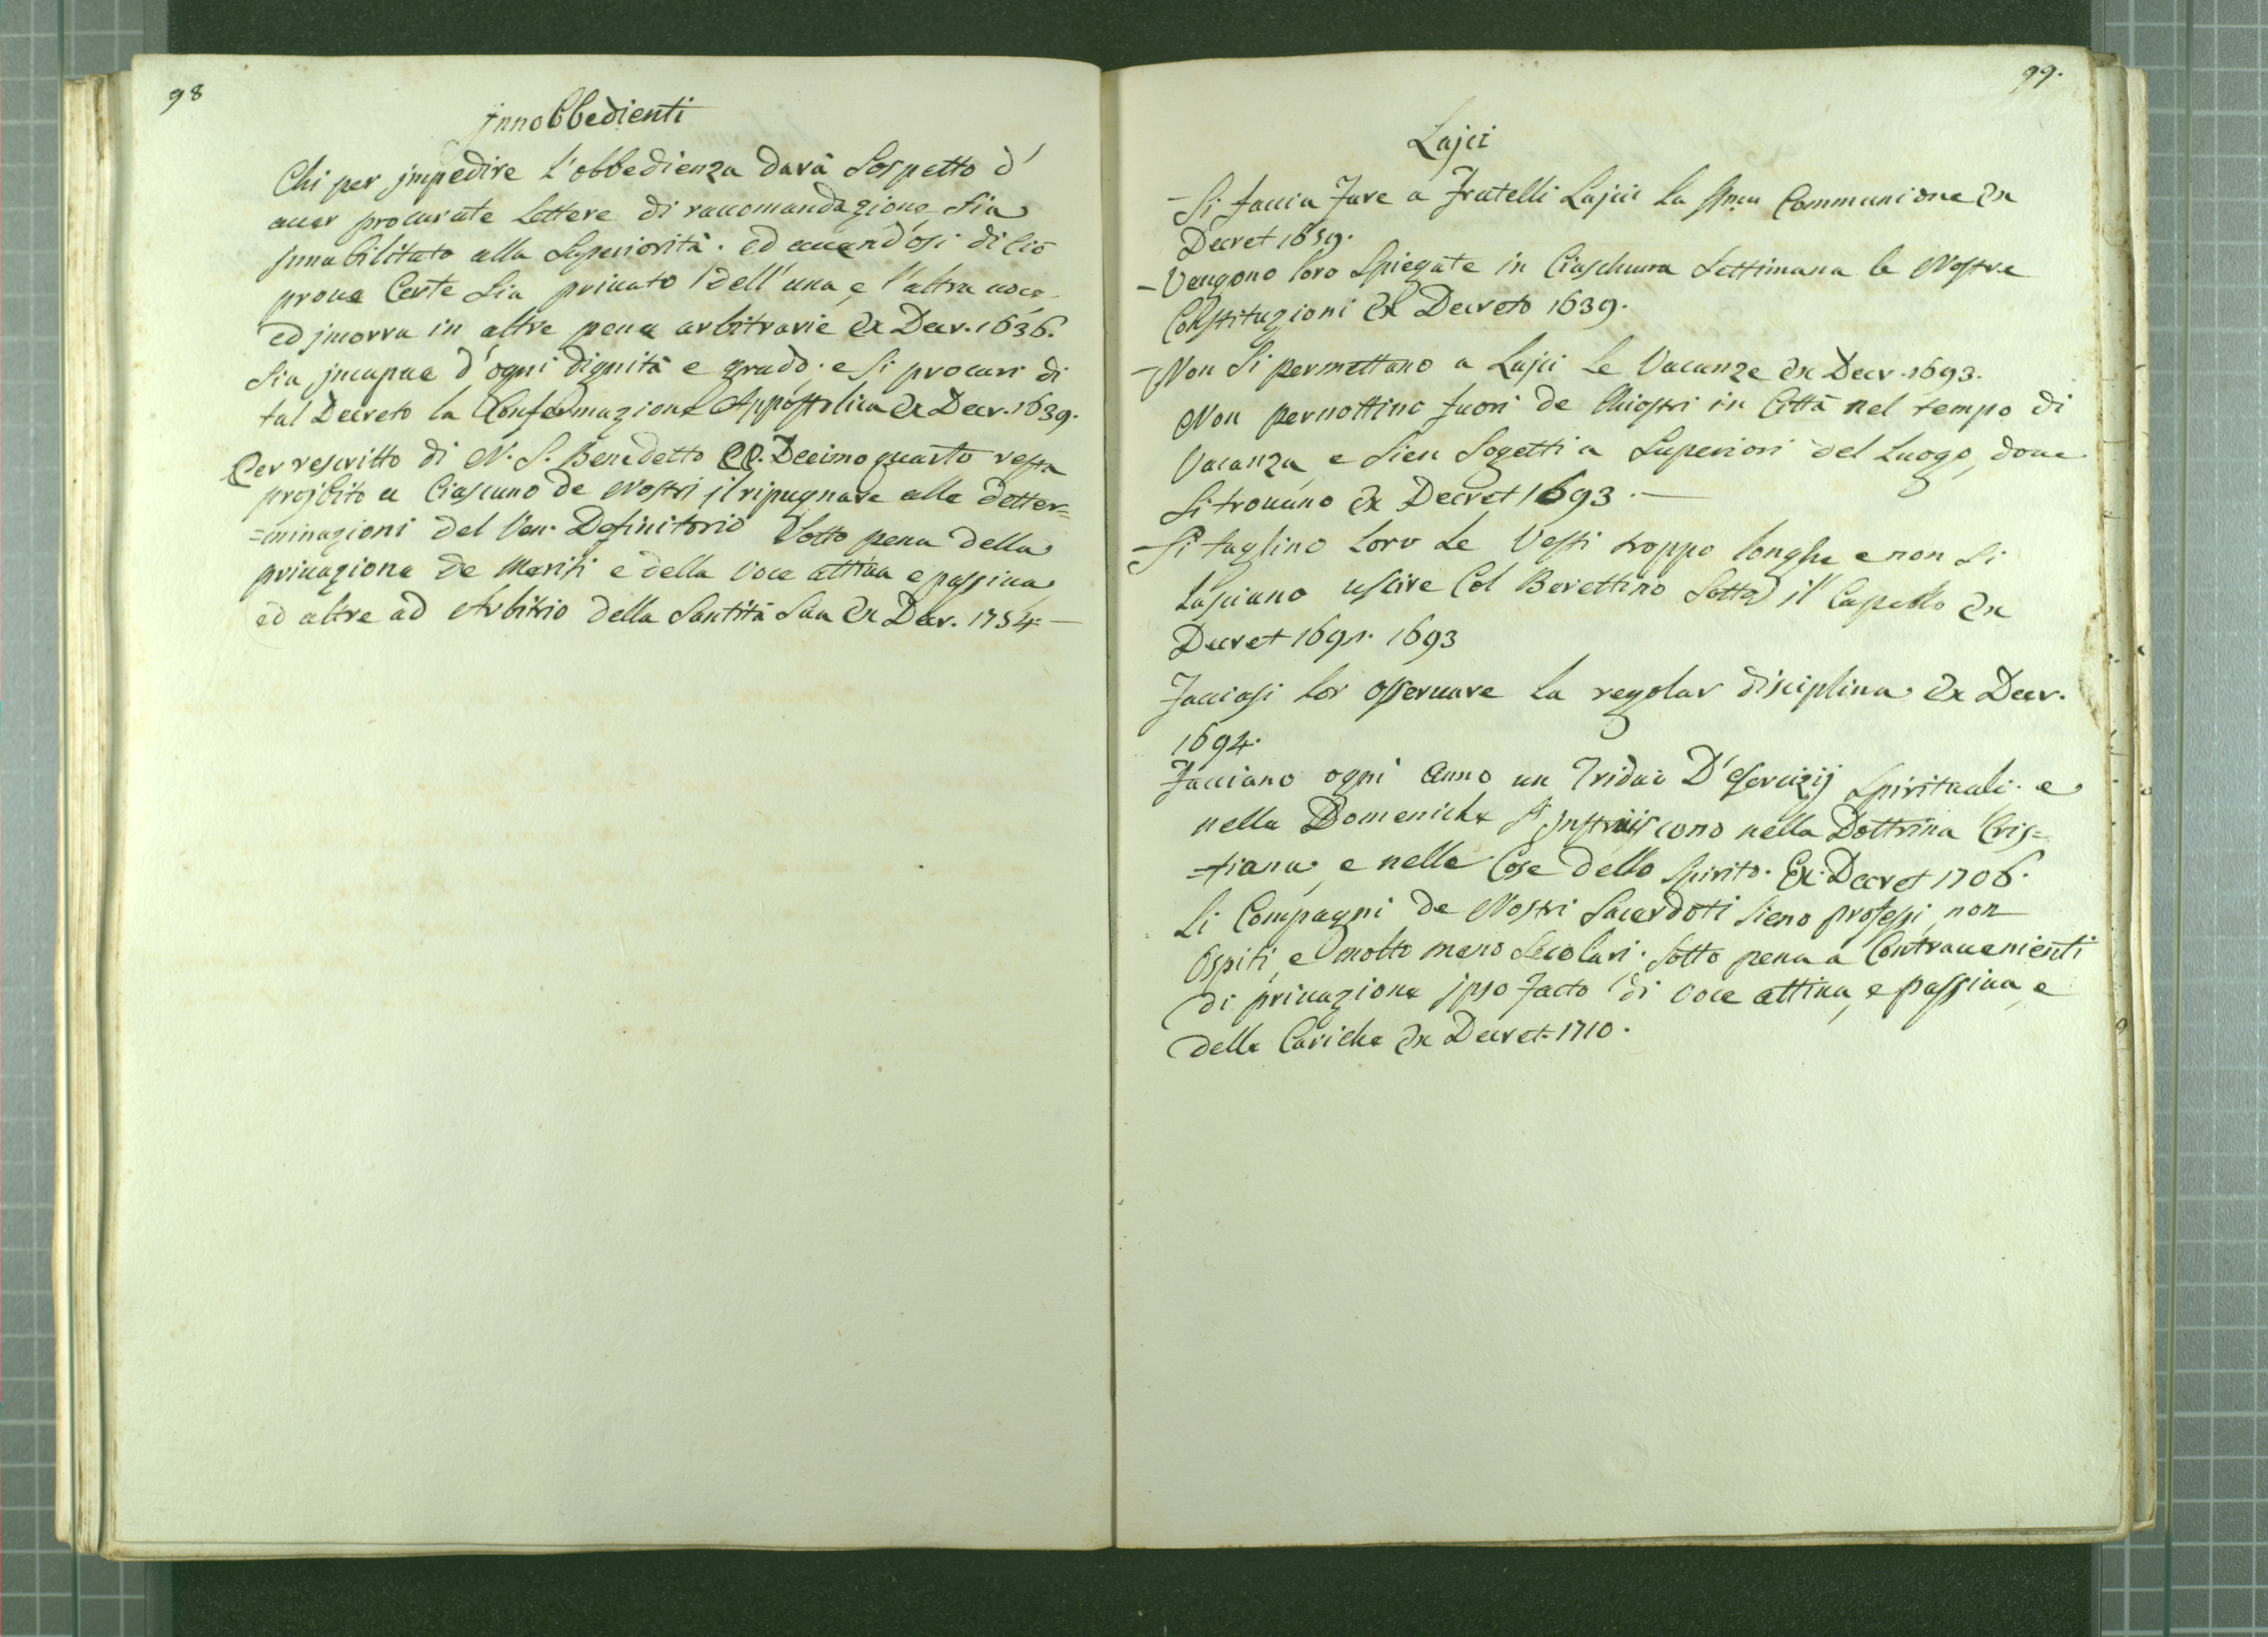 98
jnnobbedienti
Chi per jmpedire l'obbedienza darà Sospetto d'
auer procurate lettere di raccomandazione sia
jnnabilitato alla Superiorità. ed auendosi di Ciò
proue Certe sia priuato dell'una e l'altra uoce
ed jncorra in altre pene arbitrarie ex Decr. 1636.
Sia jncapace d'ogni dignità e grado; e si procuri di
tal Decreto la Confermazione Appostolica ex Decr. 1639.
Per rescritto di N. S. Benedetto PP. Decimo quarto resta
projbito a Ciascuno de Nostri il ripugnare alle detter=
=minazioni del Ven. Definitorio Sotto pena della
priuazione de Meriti e della Voce attiua e passiua
ed altre ad Arbitrio della Santità Sua ex Decr. 1754.—
99.
Lajci
- Si faccia fare a Fratelli Lajci la SSma Communione ex
Decret 1659.
- Vengono loro Spiegate in Ciascheuna Settimana le Nostre
Constituzioni ex Decreto 1639.
- Non Si permettano a Lajci le Vacanze ex Decr. 1693.
Non pernottino fuori de Chiostri in Città nel tempo di
Vacanza, e Sien Sogetti a Superiori del Luogo, doue
Si trouano ex Decret 1693.—
- Si taglino Loro Le Vesti troppo longhe e non Si
Lasciano uscire Col Berettino Sotto il Capello ex
Decret 1691. 1693
Facciasi lor osseruare la regolar disciplina ex Decr.
1694.
Facciano ogni Anno un Triduo D'esercizij Spirituali. e
nelle Domeniche S' jnstruiscono nella Dottrina Cris=
=tiana, e nelle Cose dello Spirito. Ex Decret 1706.
Li Compagni de Nostri Sacerdoti Sieno professi, non
Ospiti, e molto meno Secolari. Sotto pena a Contrauenienti
di priuazione jpso facto di Voce attiua, e passiua, e
delle Cariche ex Decret. 1710.